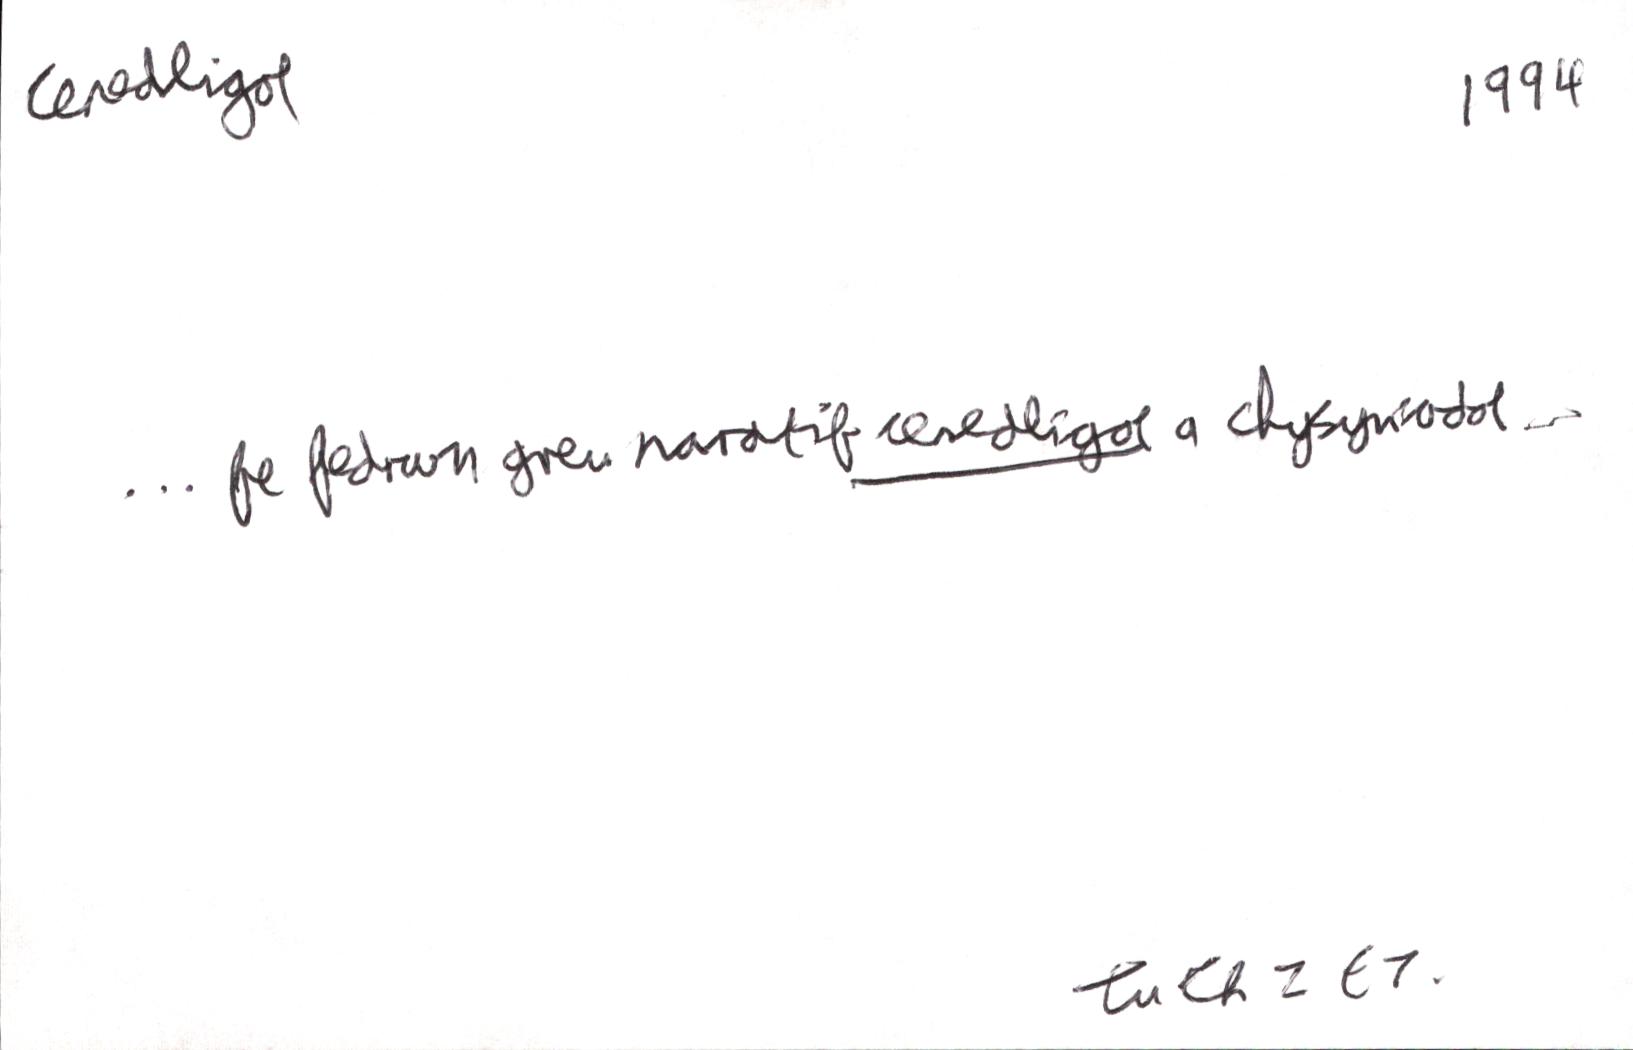 Cenedligol 1994
... fe fedrwn greu naratif cenedligol a chysyniadol